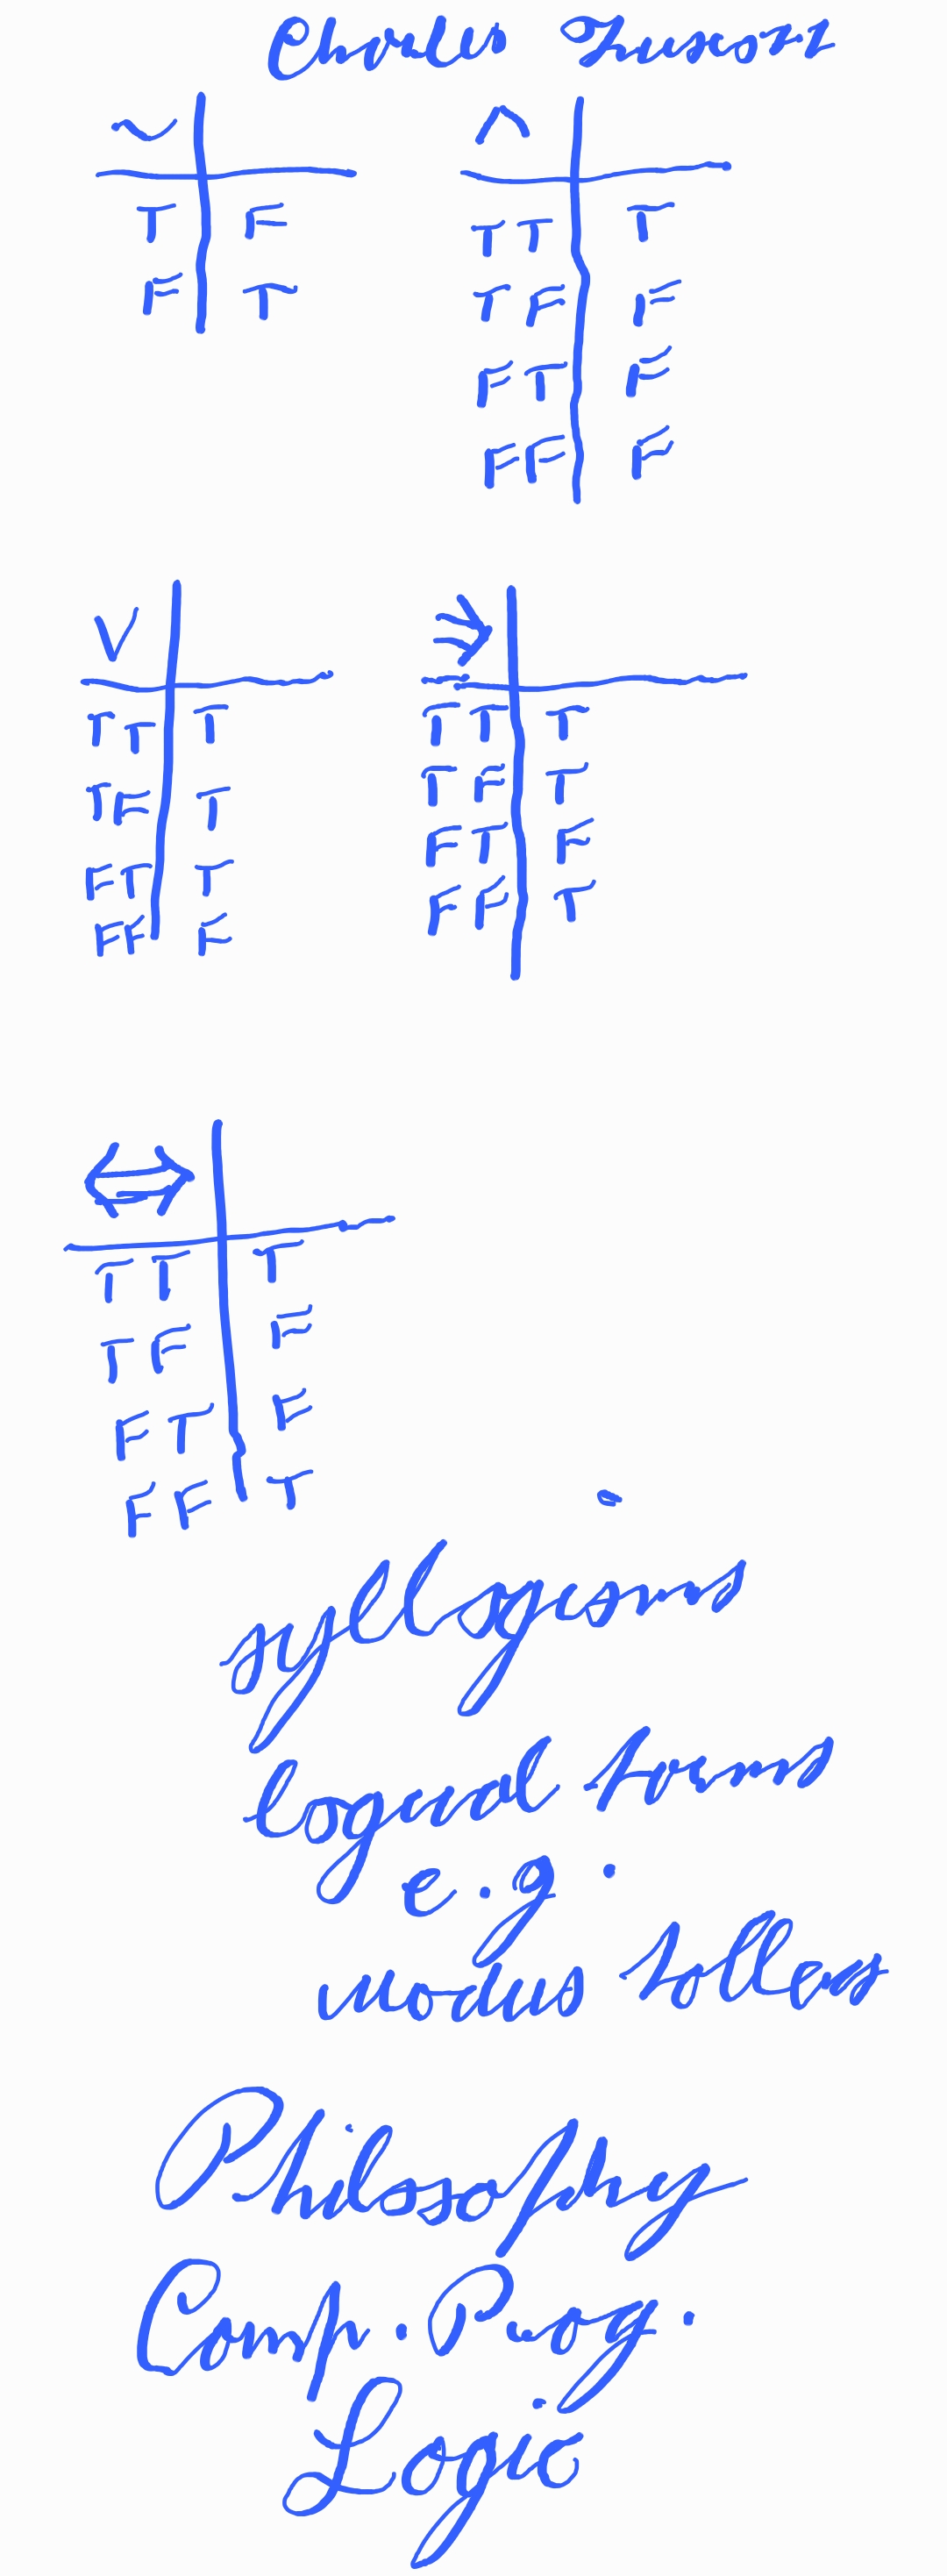 Charles
~
T F
F T
∧
T T T
T F F
F T F
F F F
∨
T T T
T F T
F T T
F F F
⇒
T T T
T F T
F T F
F F T
⇔
T T T
T F F
F T F
F F T
syllogisms
logical forms
e.g.
modus tollens
Philosophy
Comp. Prog.
Logic